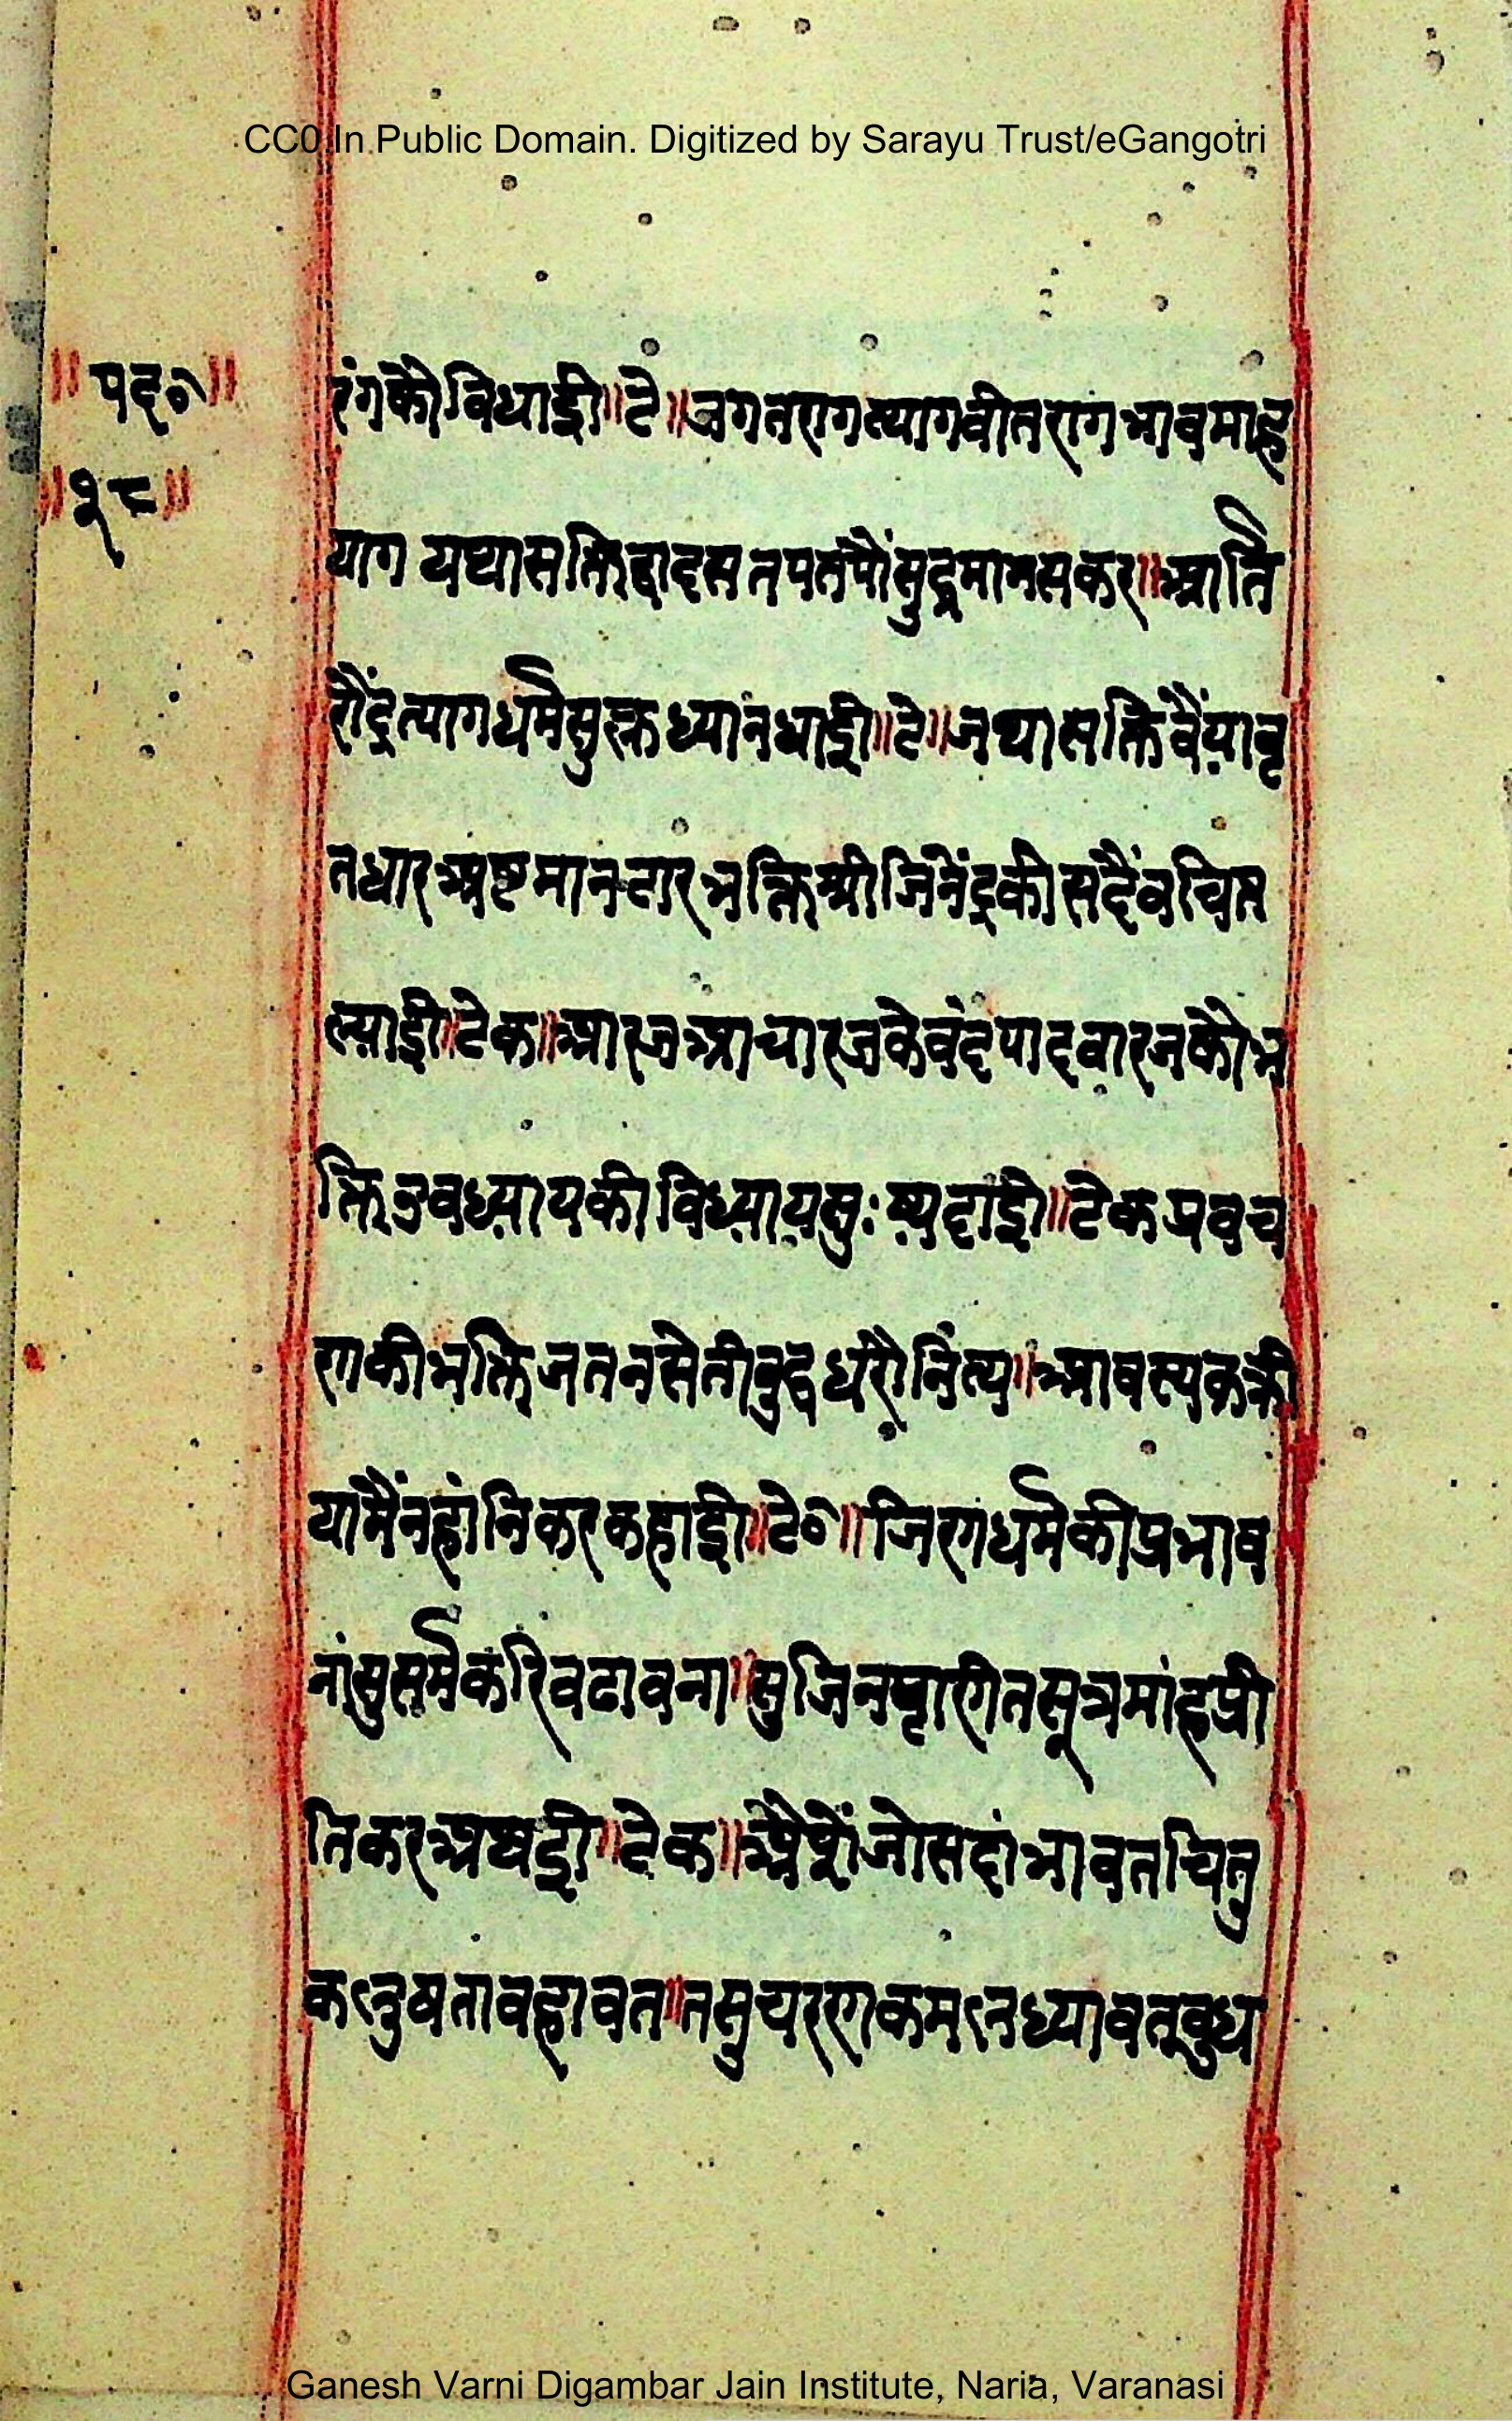 CC0 In Public Domain. Digitized by Sarayu Trust/eGangotri
॥पद०॥
॥१८॥
रंगकौ विधाई॥टे॥जगतरागत्यागवीतरागभावमाह्न
याग यथासक्तिद्वादसतपतपौंसुद्धमानसकर॥आर्ति
रौंद्रत्यागधर्मसुक्लध्यांनधाई॥टे॥जथासक्तिवैंयावृ
तधारअष्टमानटारभक्तिश्रीजिनेंद्रकीसदैंवचित्त
ल्याई॥टेक॥आरजआचारजकेवंदपादवारजकौभ
क्तिउवध्यायकी विध्यायसुःष्यदाई॥टेक प्रवच
णकीभक्तिजतनसेतीवुद्धधरौंनित्य॥आवस्यकक्री
यांमैंनहांनिकरकहाई॥टे०॥जिणधर्मकीप्रभाव
नांसुसर्मकरिवढावना॥सुजिनप्राणीतसूत्रमांह्नप्री
तिकरअघाई॥टेक॥ जोसदांभावतचितु
कलुषतावहावत॥तसुचरणकमलनध्यावतवुध
Ganesh Varni Digambar Jain Institute, Naria, Varanasi